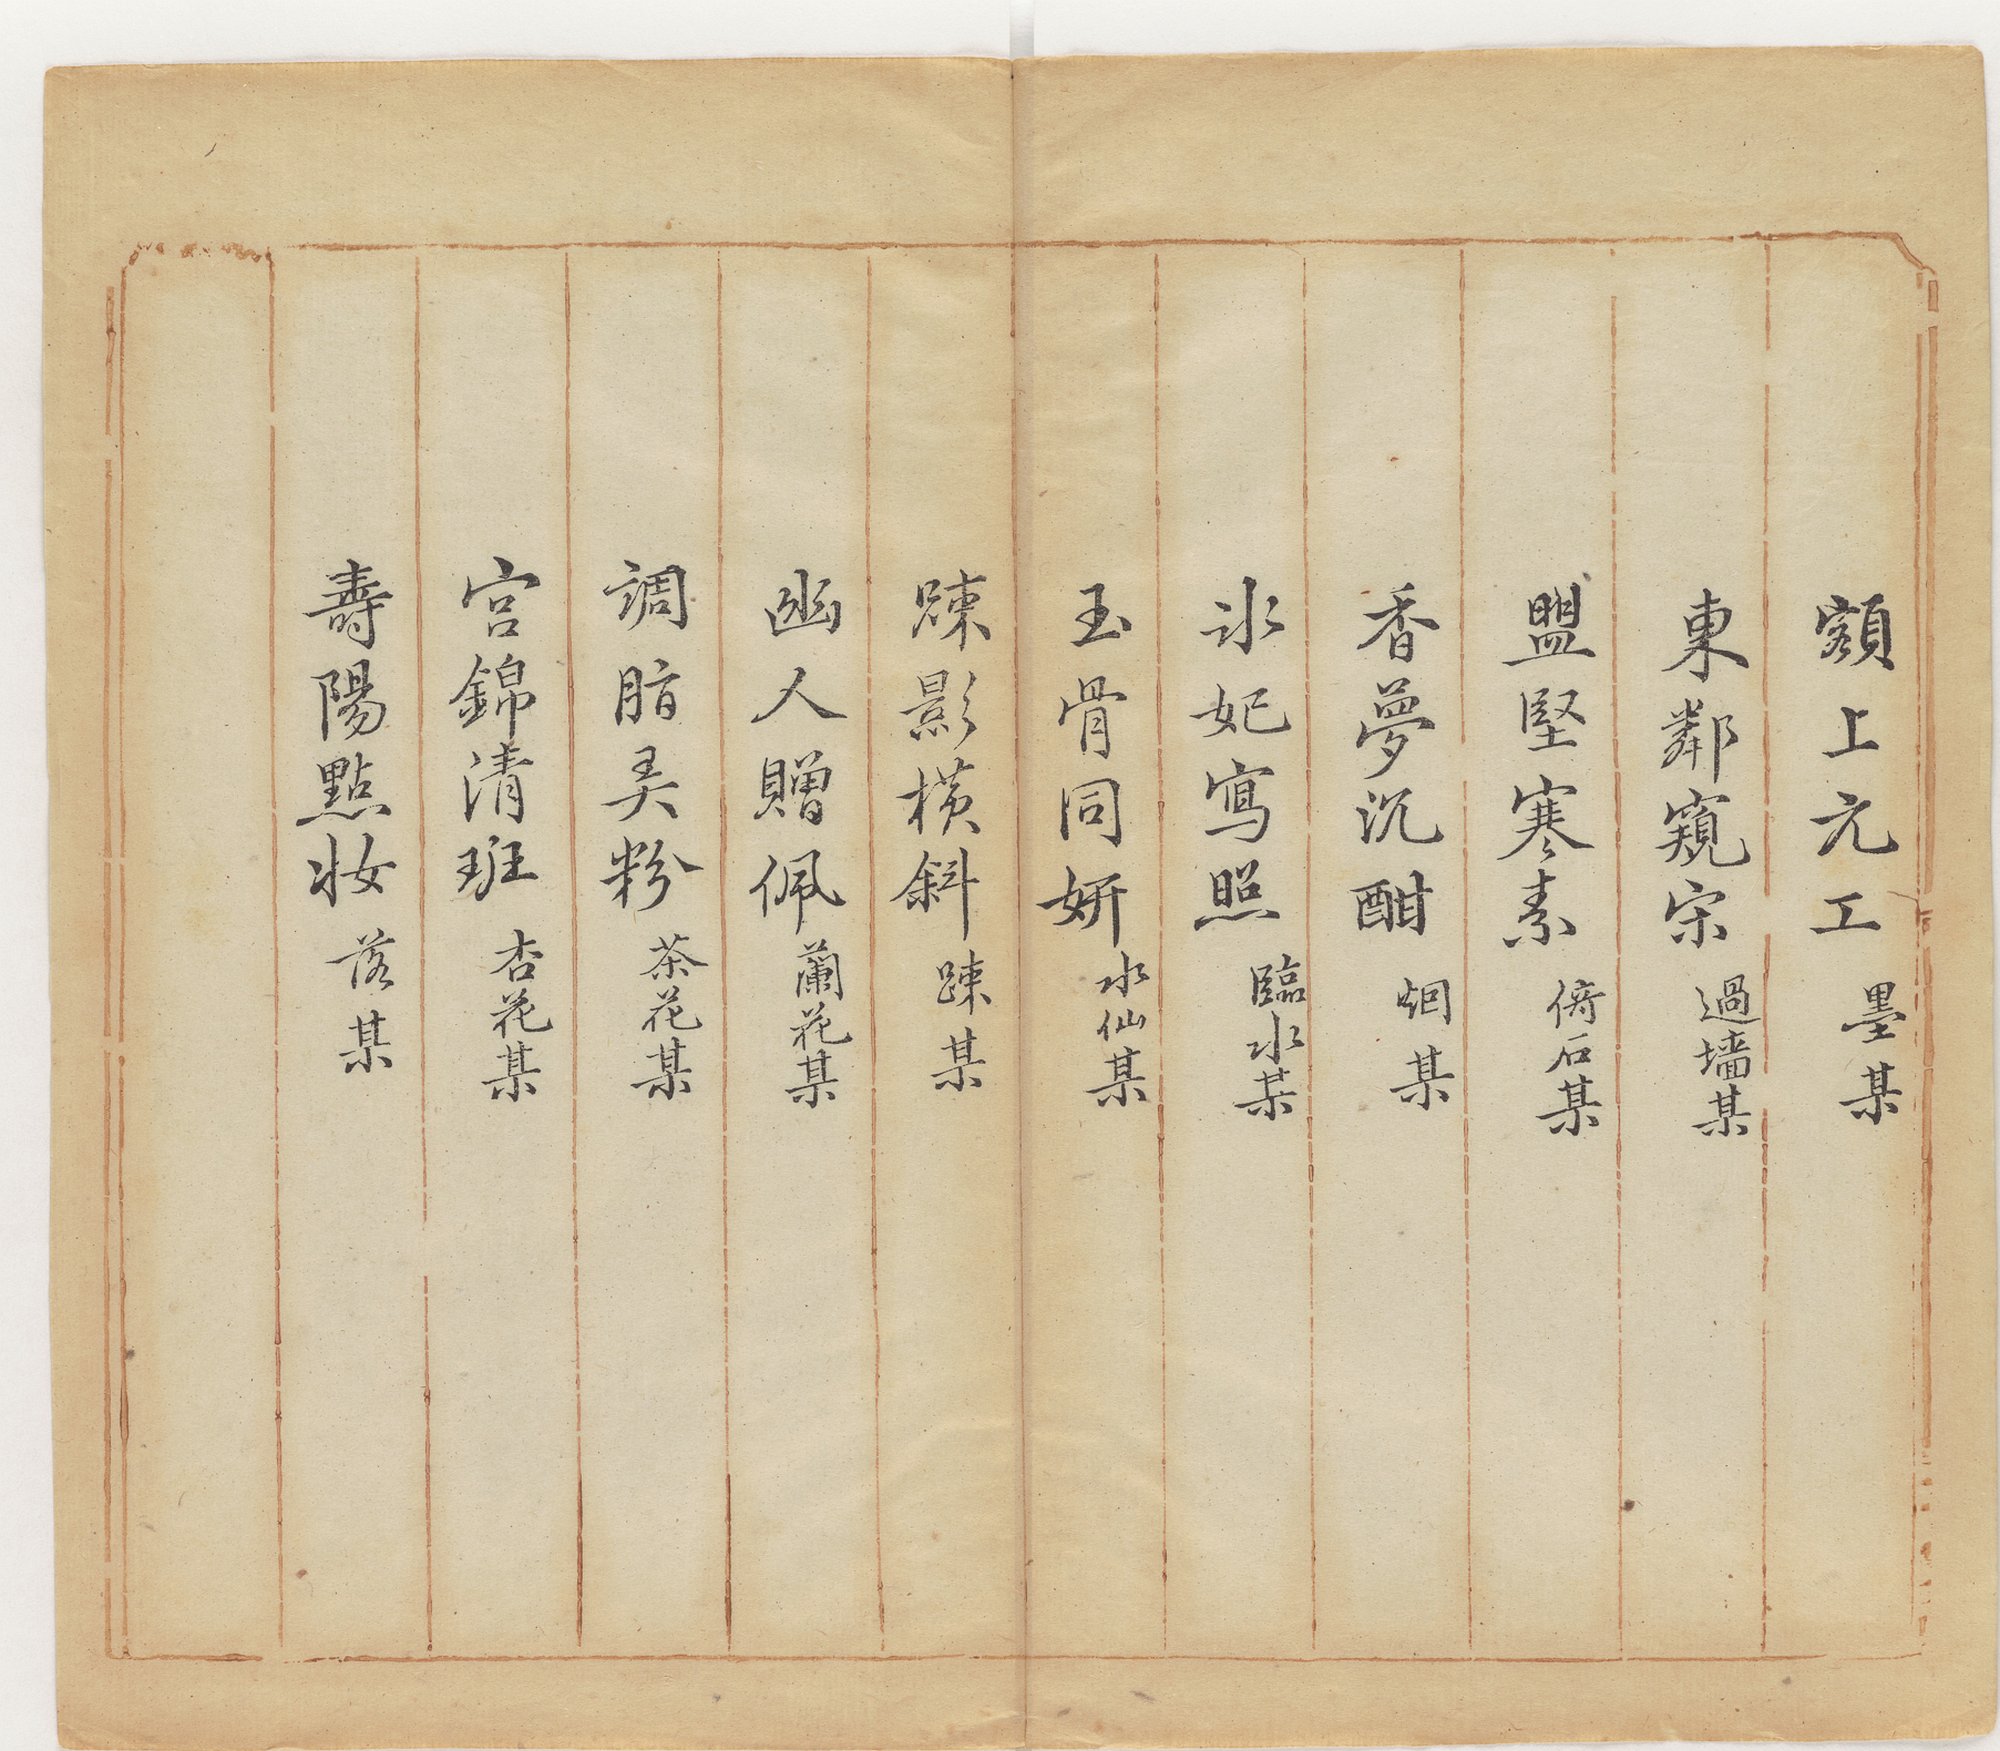 額上亢工 墨某
東鄰窺宋 過墻某
盟堅寒素 倚石某
香夢沉酣 烟某
冰妃寫照 臨水某
玉骨同妍 水仙某
踈影橫斜 踈某
幽人贈佩 蘭花某
調脂弄粉 茶花某
宮錦清班 杏花某
壽陽點妝 落某